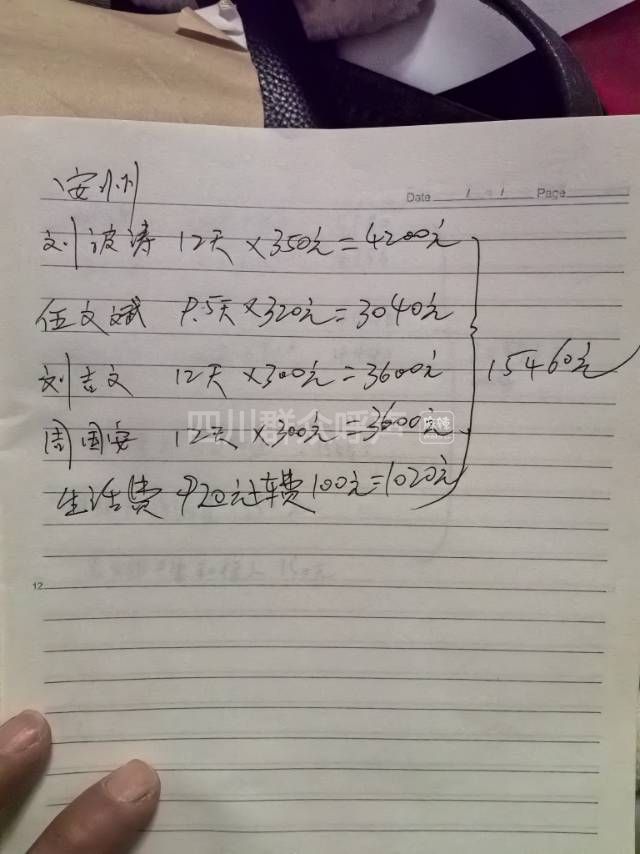 安州
Date / / Page
刘波涛 12天×350元=4200元
伍文斌 9.5天×320元=3040元
刘吉文 12天×300元=3600元
15460元
四川群众呼
周国安 12天×300元=3600元
生活费920元过车费100元=1020元
12